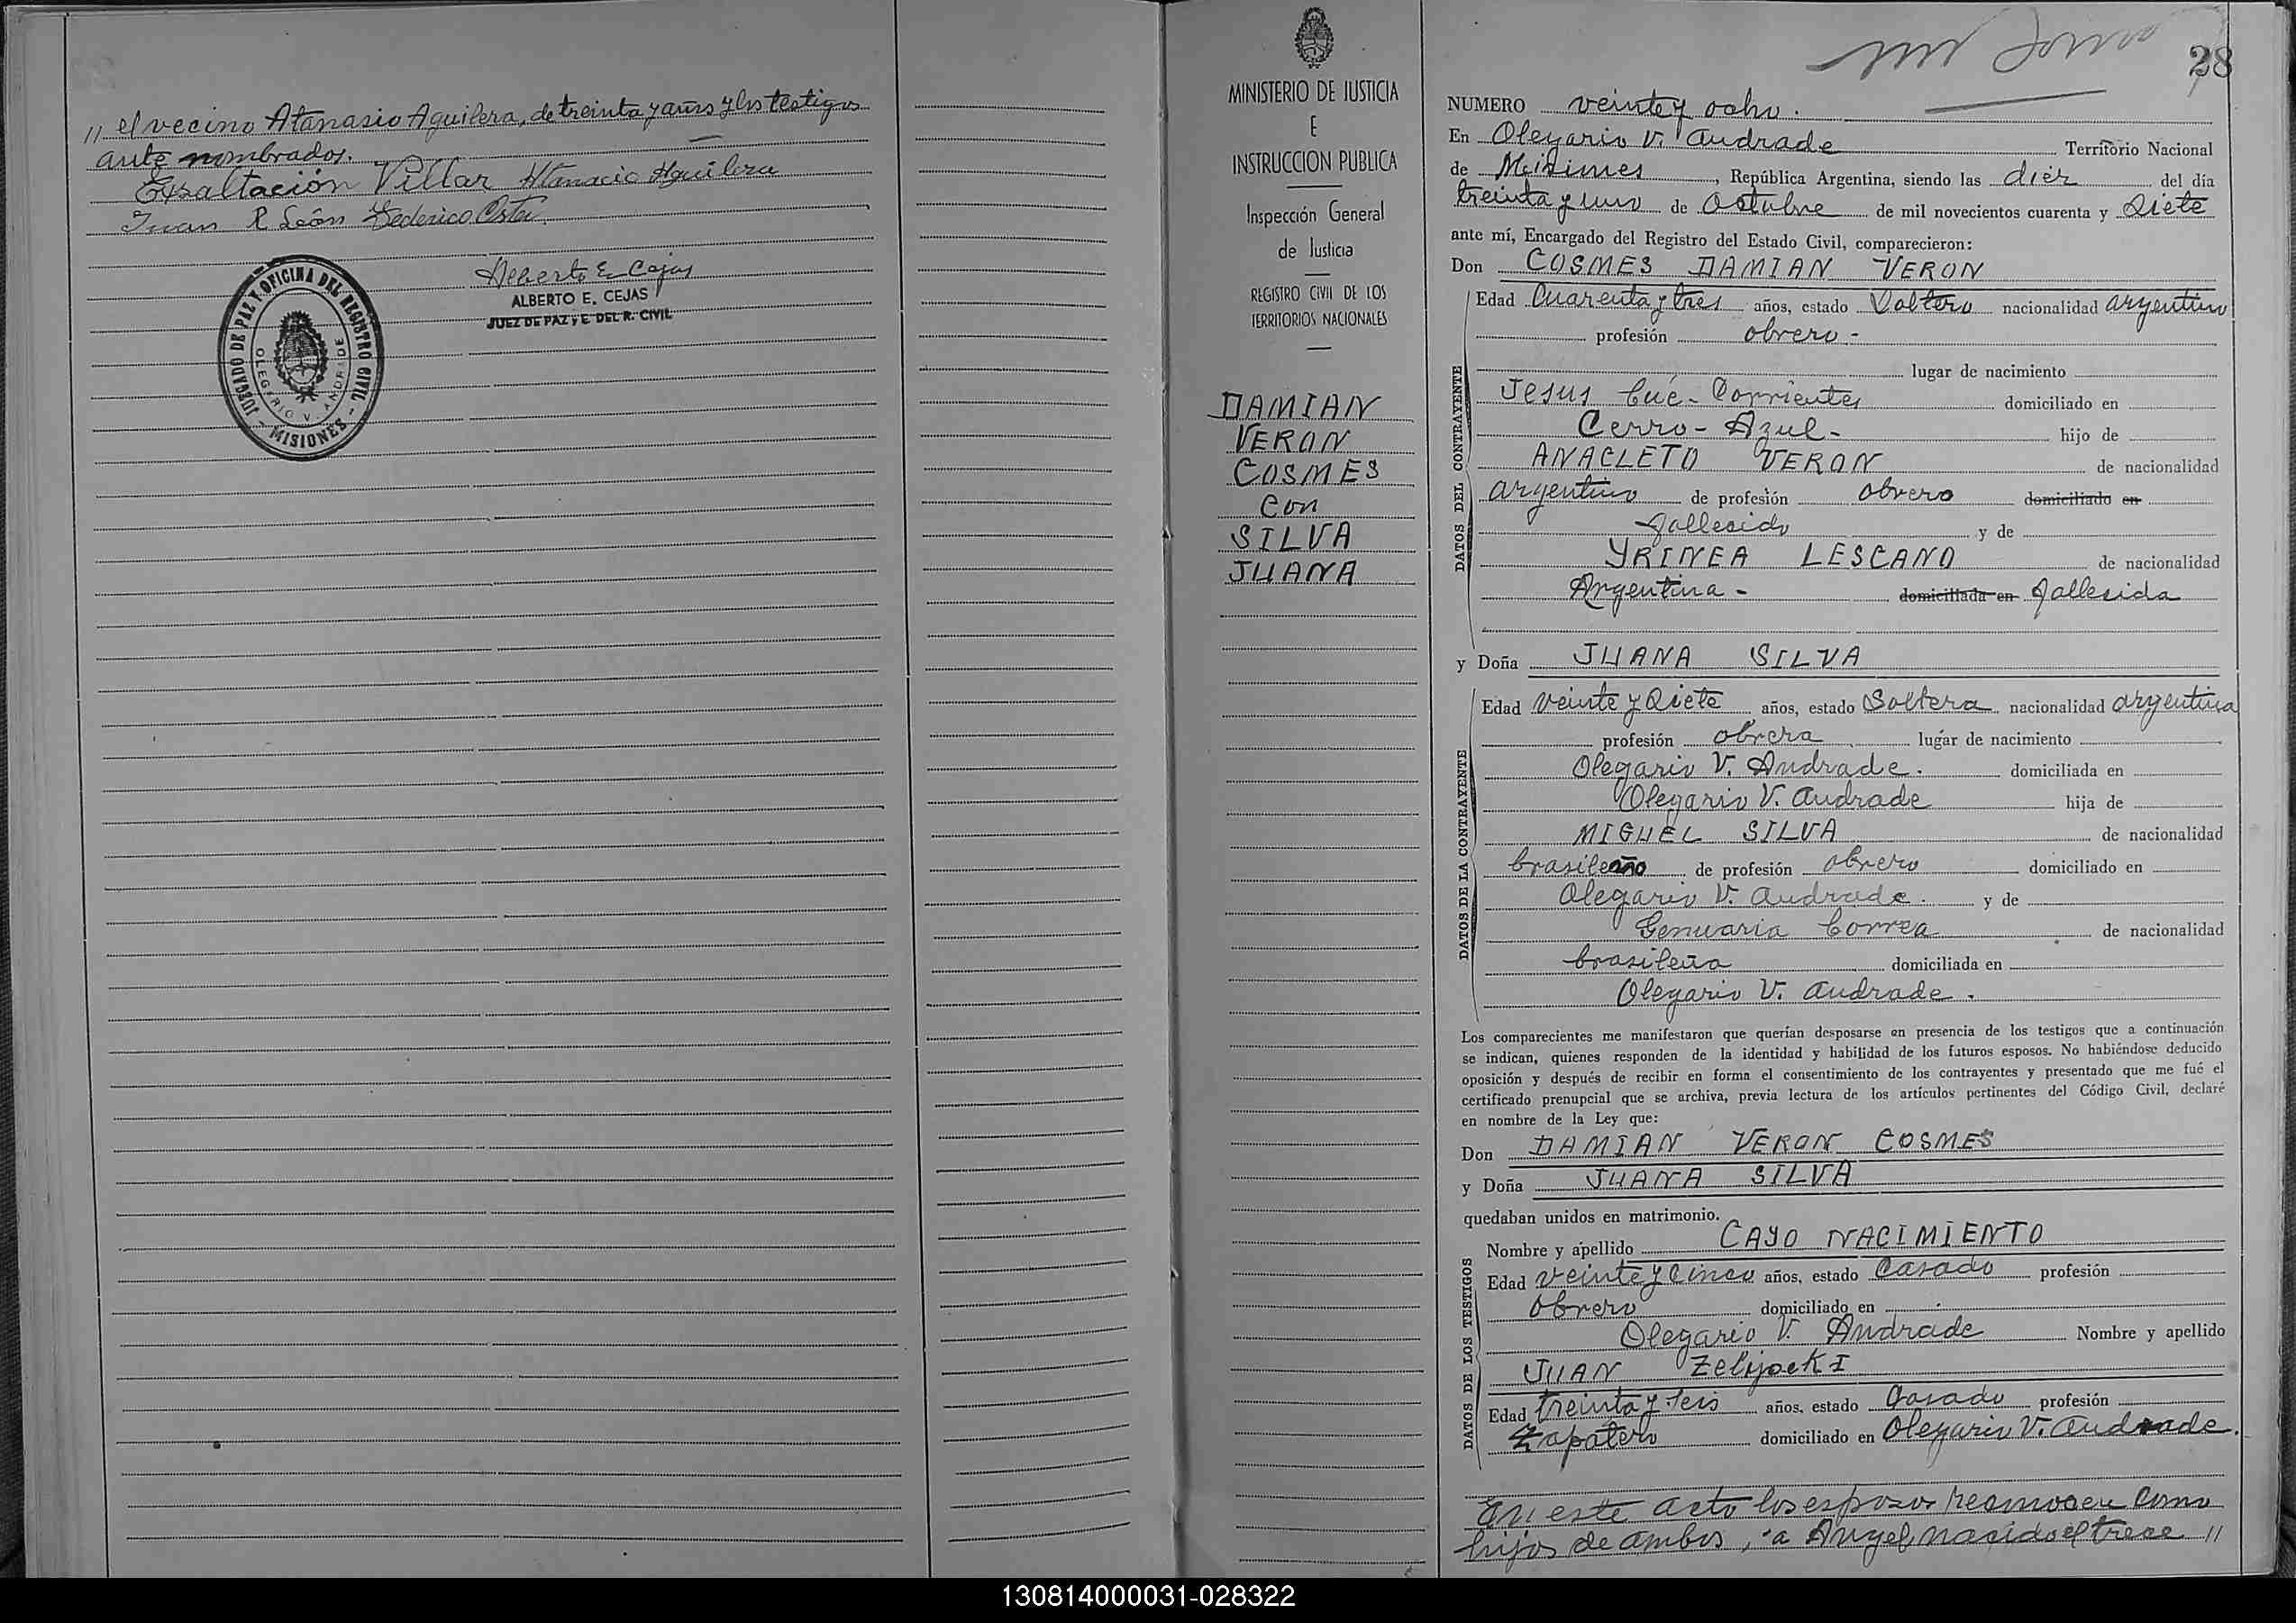 // el vecino Atanasio Aguilera, de treinta y años y los testigos
ante nombrados.
Exaltación Villar Atanacio Aguilera
Juan R León Federico
Alberto E Cejas
ALBERTO E. CEJAS
JUEZ DE PAZ y E. DEL R. CIVIL
JUZGADO DE PAZ Y OFICINA DEL REGISTRO CIVIL
OLEGARIO V. ANDRADE
- MISIONES -
MINISTERIO DE JUSTICIA
E
INSTRUCCION PUBLICA
Inspección General
de Justicia
REGISTRO CIVIL DE LOS
TERRITORIOS NACIONALES
DAMIAN
VERON
COSMES
con
SILVA
JUANA
28
NUMERO veinte y ocho.
En Olegario V. Andrade Territorio Nacional
de Misiones, República Argentina, siendo las diez del día
treinta y uno de Octubre de mil novecientos cuarenta y Siete
ante mí, Encargado del Registro del Estado Civil, comparecieron:
Don COSMES DAMIAN VERON
DATOS DEL CONTRAYENTE
Edad Cuarenta y tres años, estado Soltero nacionalidad argentino
profesión obrero -
lugar de nacimiento
Jesus Cué - Corrientes domiciliado en
Cerro - Azul - hijo de
ANACLETO VERON de nacionalidad
argentino de profesión obrero domiciliado en
fallesido y de
YRINEA LESCANO de nacionalidad
Argentina - domiciliada en fallesida
y Doña JUANA SILVA
DATOS DE LA CONTRAYENTE
Edad veinte y Siete años, estado Soltera nacionalidad argentina
profesión obrera lugar de nacimiento
Olegario V. Andrade. domiciliada en
Olegario V. Andrade hija de
MIGUEL SILVA de nacionalidad
brasileño de profesión obrero domiciliado en
Olegario V. Andrade. y de
Genuaria Correa de nacionalidad
brasileña domiciliada en
Olegario V. Andrade.
Los comparecientes me manifestaron que querían desposarse en presencia de los testigos que a continuación
se indican, quienes responden de la identidad y habilidad de los futuros esposos. No habiéndose deducido
oposición y después de recibir en forma el consentimiento de los contrayentes y presentado que me fué el
certificado prenupcial que se archiva, previa lectura de los artículos pertinentes del Código Civil, declaré
en nombre de la Ley que:
Don DAMIAN VERON COSMES
y Doña JUANA SILVA
quedaban unidos en matrimonio.
DATOS DE LOS TESTIGOS
Nombre y apellido CAYO NACIMIENTO
Edad veinte y cinco años, estado Casado profesión
Obrero domiciliado en
Olegario V. Andrade Nombre y apellido
JUAN ZelijockI
Edad treinta y seis años, estado Casado profesión
Zapatero domiciliado en Olegario V. Andrade.
En este acto los esposos reconocen como
hijos de ambos, a Angel nacido el trece //
130814000031-028322